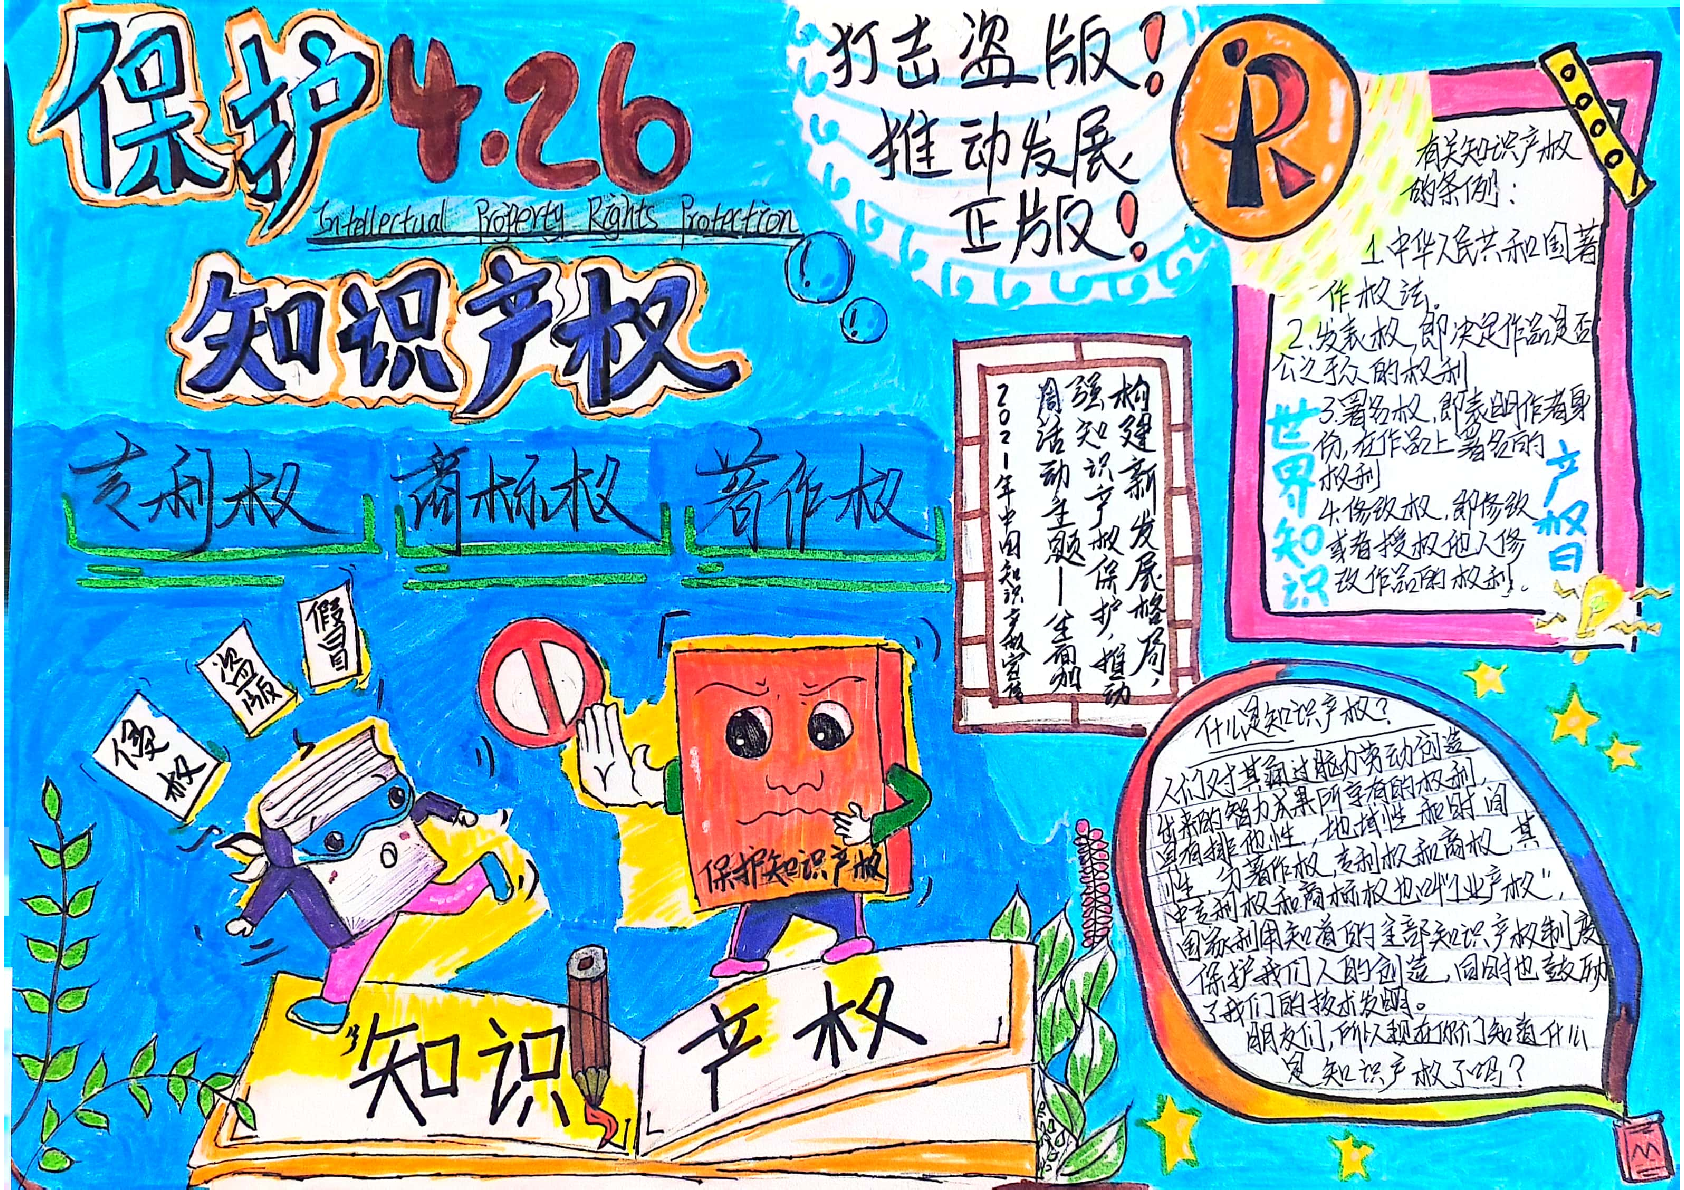 保护4.26
Intellectual Property Rights Protection
知识产权
打击盗版！
推动发展
正版！
R
专利权
商标权
著作权
构建新发展格局，
强知识产权保护，推动
周活动主题——全面加
2021年中国知识产权宣传
有关知识产权
的条例：
1.中华人民共和国著
作权法。
2.发表权，即决定作品是否
公之于众的权利
3.署名权，即表明作者身
份，在作品上署名的
权利
4.修改权，即修改
或者授权他人修
改作品的权利。
世界知识
产权日
侵权
盗版
假冒
保护知识产权
知识产权
什么是知识产权？
人们对其通过脑力劳动创造
出来的智力成果所享有的权利，
具有排他性，地域性和时间
性，分著作权，专利权和商权，其
中专利权和商标权也叫“工业产权”，
国家利用知道的全部知识产权制度
保护我们人的创造，同时也鼓励
了我们的技术发明。
朋友们，所以现在你们知道什么
是知识产权了吗？